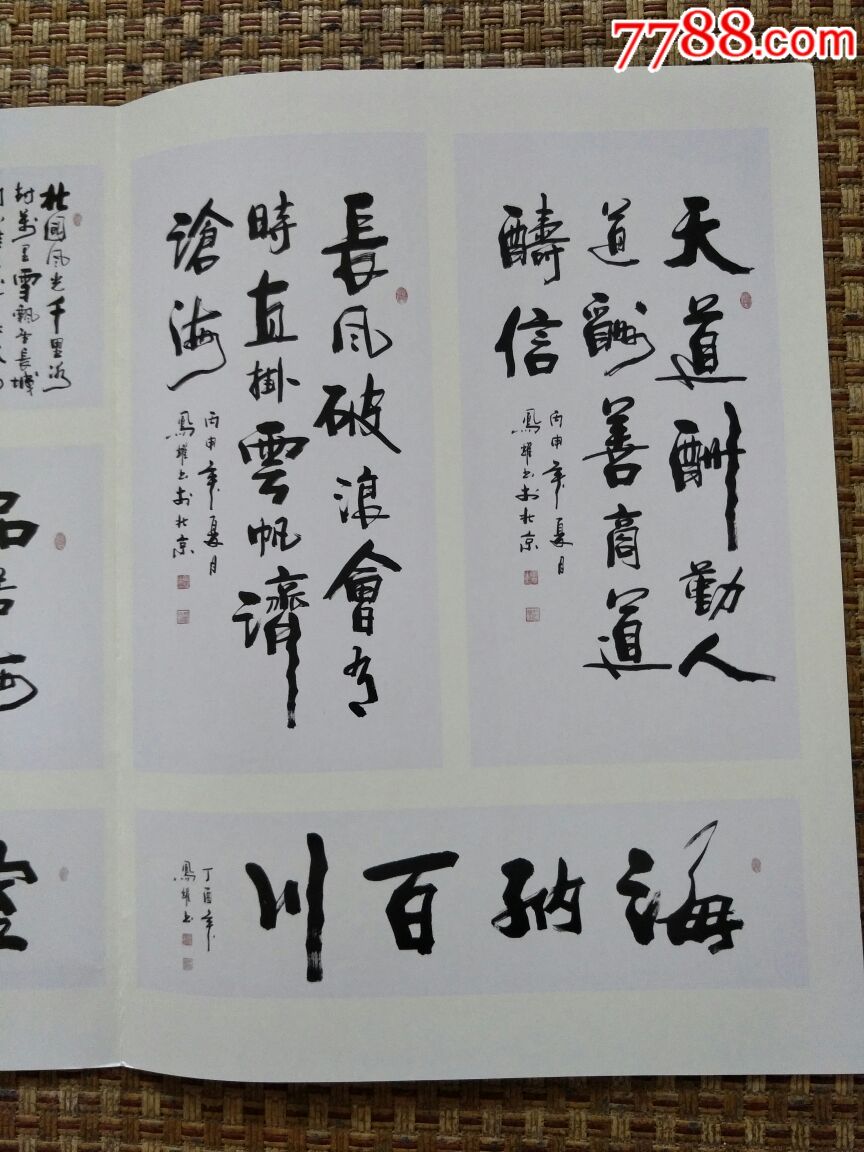 7788.com
天道酬勤人
道酬善商道
醻信
丙申年夏月
鳳耀书於北京
長風破浪會有
時直掛雲帆濟
滄海
丙申年夏月
鳳耀书於北京
北國風光千里冰
封萬里雪飄望長城
海納百川
丁酉年
鳳耀书